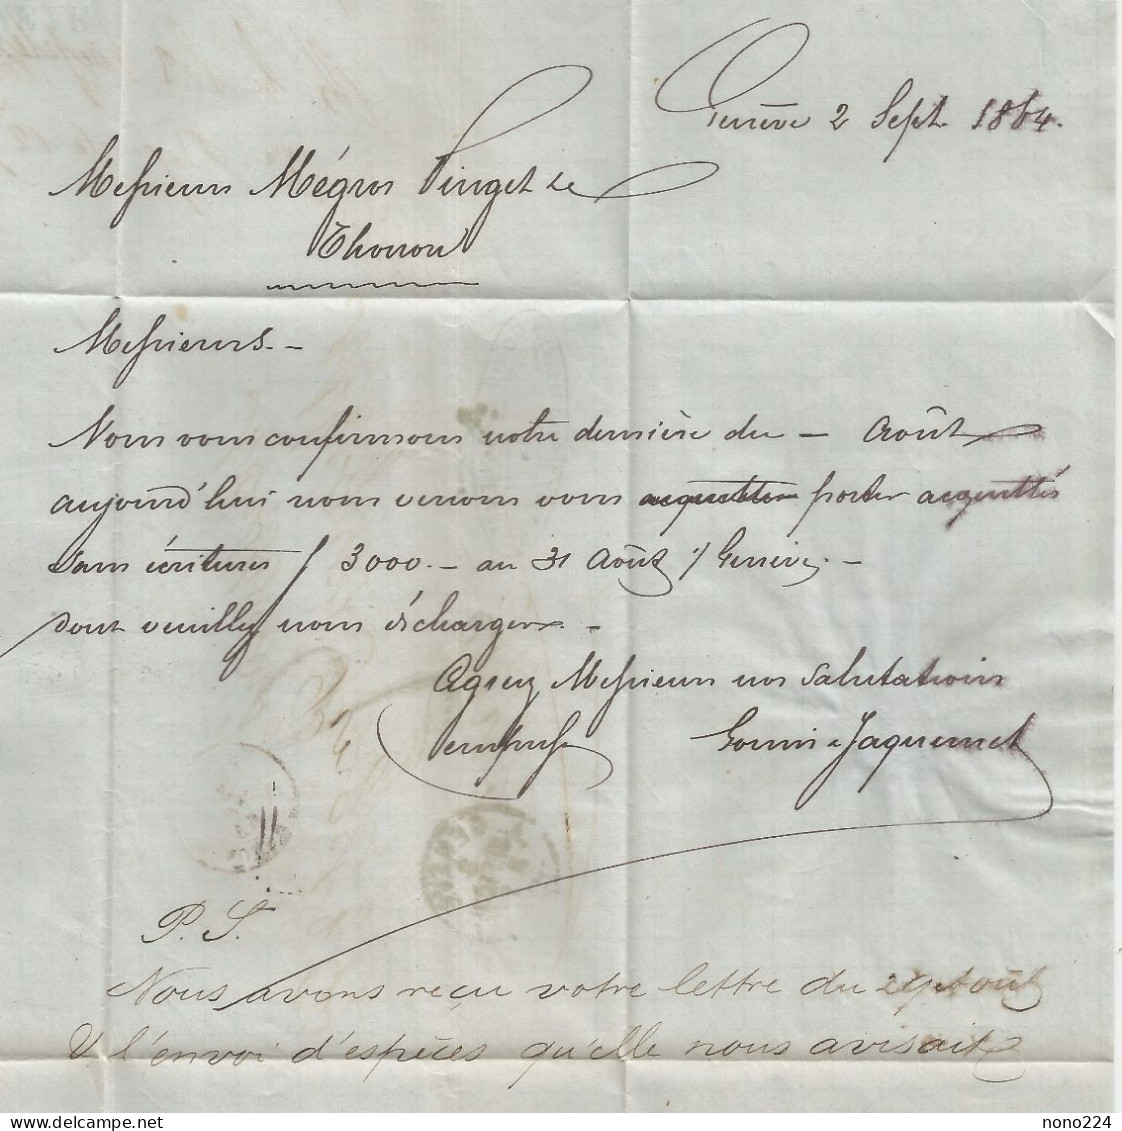 Genève 2 Sept. 1864.
Messieurs Mégroz Pinget &c
Thonon
Messieurs. -
Nous vous confirmons notre dernière du - Août
aujourd'hui nous venons vous acquitter porter acquittés
sans écritures f 3000. - au 31 Août s/ Genève. -
dont veuillez nous décharger. -
Agréez Messieurs nos salutations
empressées
Jaquemet
P. S.
Nous avons reçu votre lettre du août
& l'envoi d'espèces qu'elle nous avisait
delcampe.net
nono224